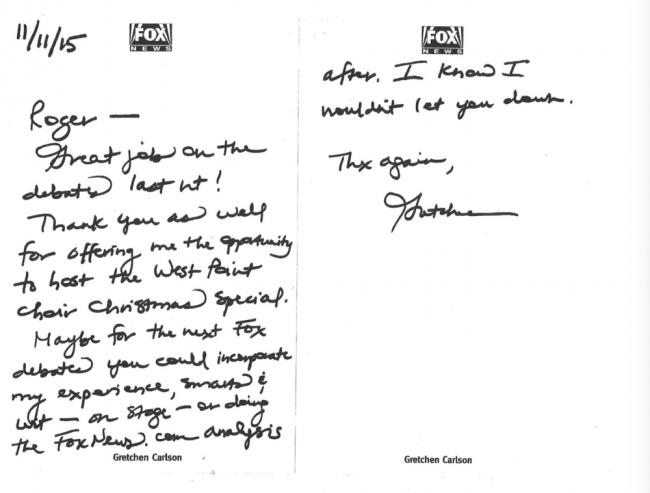 11/11/15
FOX
NEWS
Roger —
Great job on the
debate last nt!
Thank you as well
for offering me the opportunity
to host the West Point
choir Christmas special.
Maybe for the next Fox
debate you could incorporate
my experience, smarts &
wit — on stage — or doing
the FoxNews.com analysis
Gretchen Carlson
FOX
NEWS
after. I know I
wouldn't let you down.
Thx again,
Gretchen
Gretchen Carlson